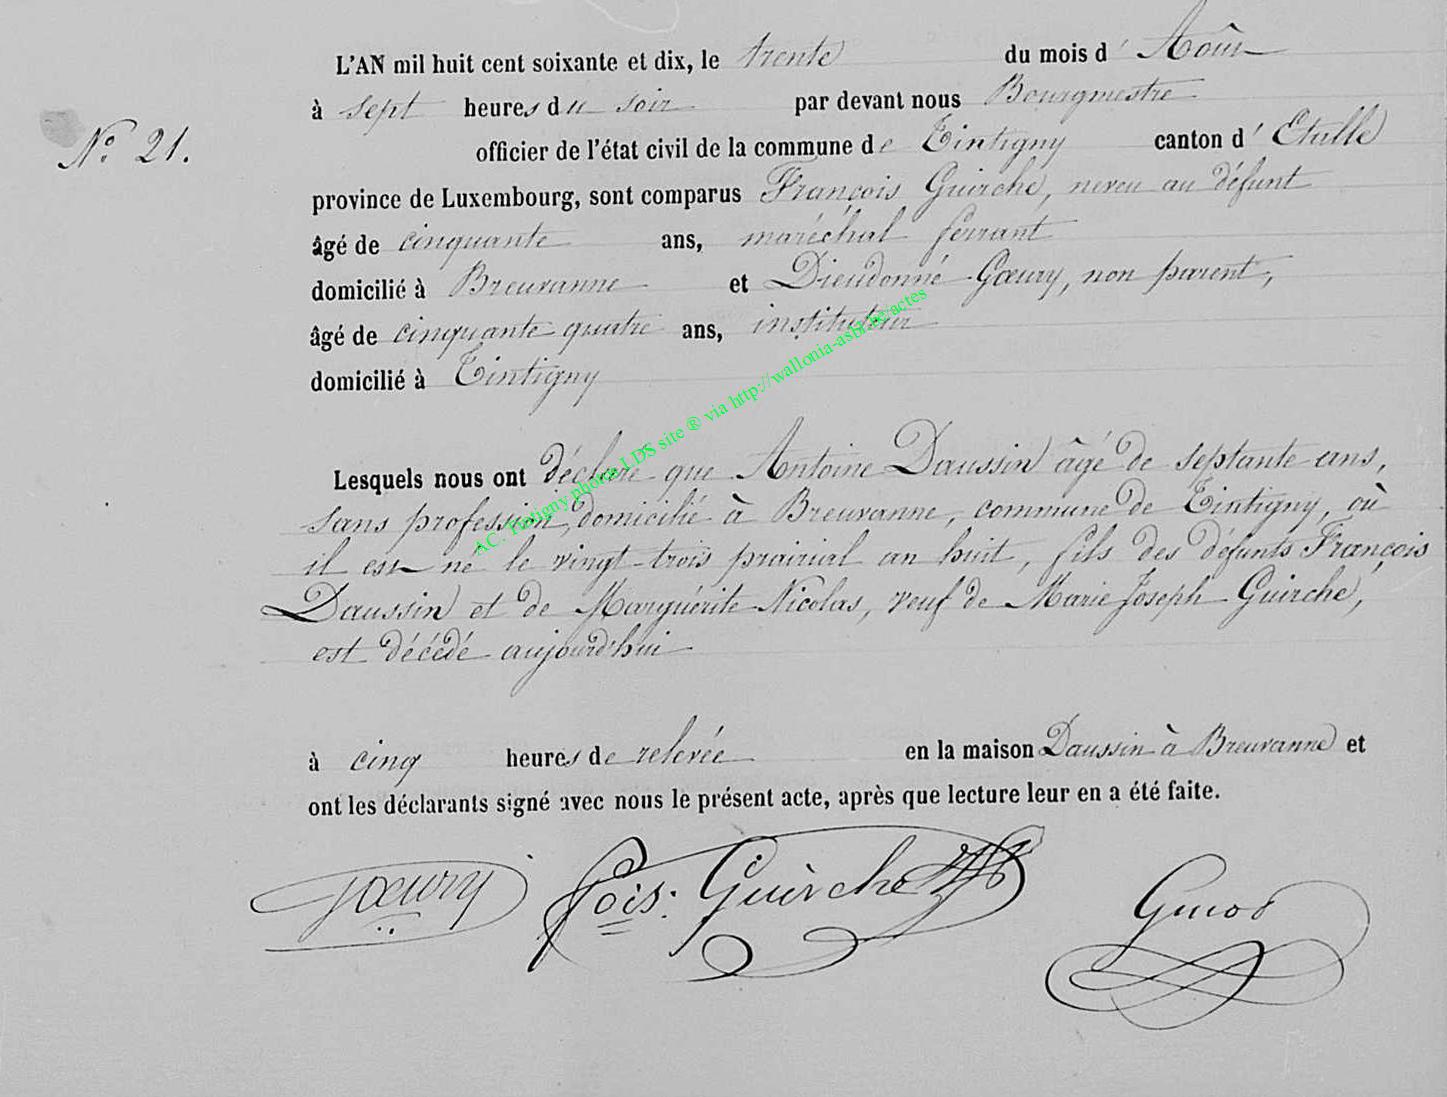 L'AN mil huit cent soixante et dix, le trente du mois d' Août
à sept heures du soir par devant nous Bourgmestre
N° 21.
officier de l'état civil de la commune de Tintigny canton d' Etalle
province de Luxembourg, sont comparus François Guirche, neveu au défunt
âgé de cinquante ans, maréchal ferrant
domicilié à Breuvanne et Dieudonné Gœury, non parent,
âgé de cinquante quatre ans, instituteur
domicilié à Tintigny
AC. Tintigny photos LDS site ® via http://wallonia-asbl.be/actes
Lesquels nous ont déclaré que Antoine Daussin âgé de septante ans,
sans profession, domicilié à Breuvanne commune de Tintigny, où
il est né le vingt-trois prairial an huit, fils des défunts François
Daussin et de Marguérite Nicolas, veuf de Marie Joseph Guirche,
est décédé aujourd'hui
à cinq heures de relevée en la maison Daussin à Breuvanne et
ont les déclarants signé avec nous le présent acte, après que lecture leur en a été faite.
Gœury Fçois: Guirche